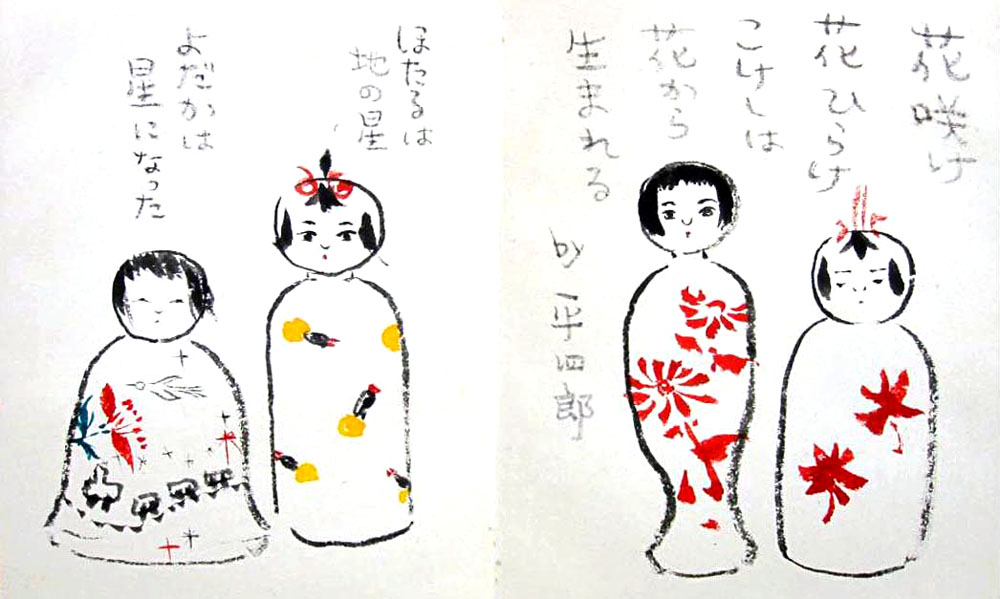 花咲け
花ひらけ
こけしは
花から
生まれる
by 平四郎
ほたるは
地の星
よだかは
星になった